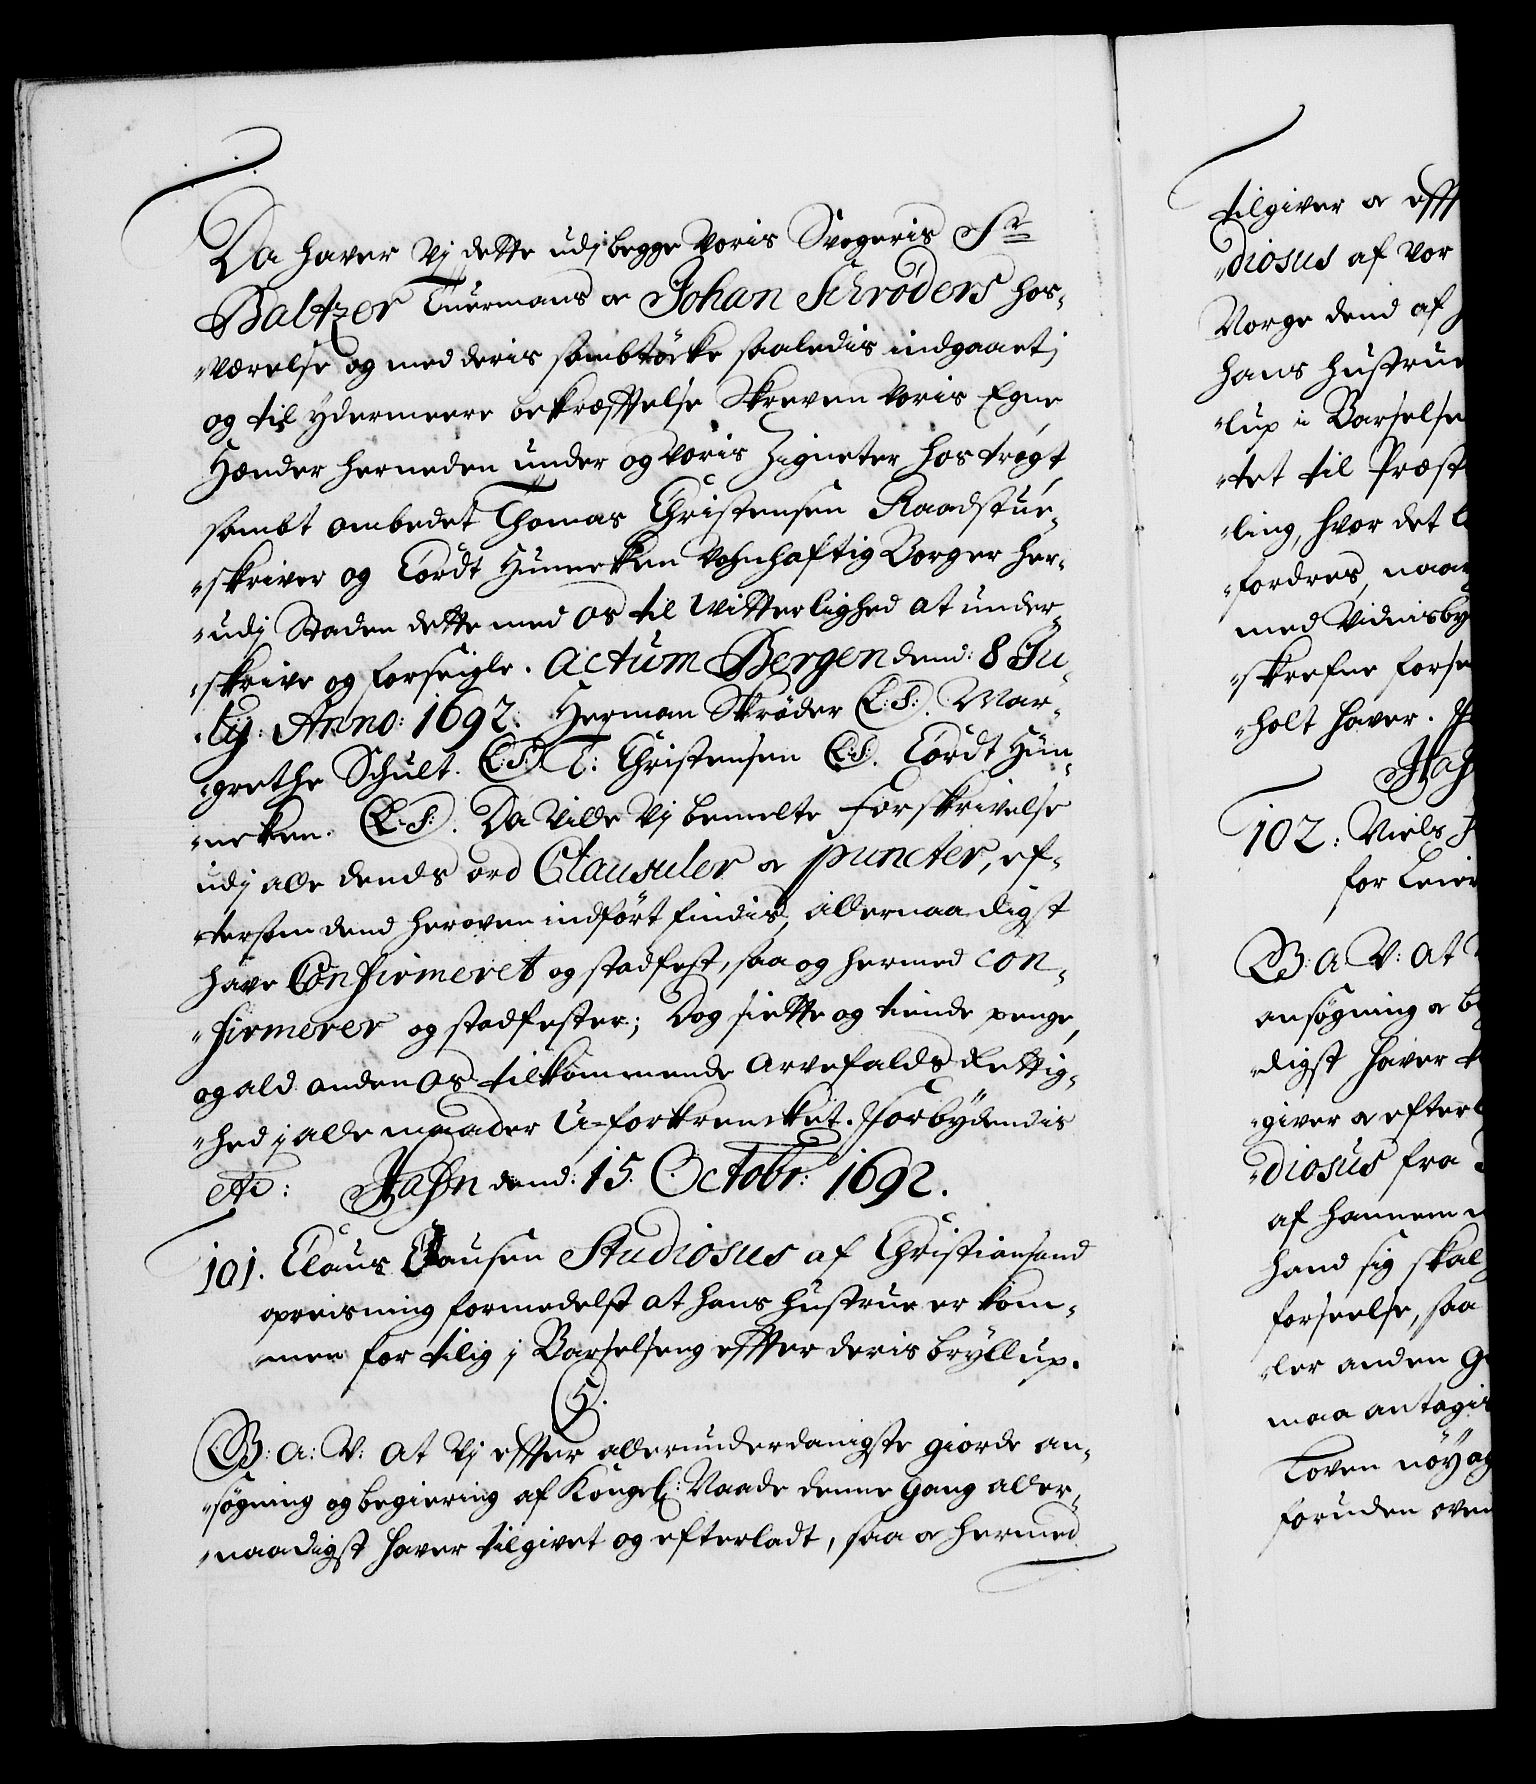 Da haver Vj dette udj begge voris Svogeris Sr
Baltzer Tuermans oc Johan Schrøders hos-
-værelse og med deris sambtÿcke saaledis indgaaet,
og til ydermeere bekræfftelse Skreven voris Egne
Hænder herneden under og voris Zigneter hostrøgt,
sambt ombedet Thomas Christensen Raadstue-
-skriver og Cordt Hünneken Vohnhaftig Borger her-
-udj Staden dette med os til Witterlighed at under-
-skrive og forseigle. Actum Bergen dend: 8 Ju-
-lij: Anno: 1692: Herman Skrøder (L:S:). Mar-
-grethe Schult. (L:S:) T: Christensen (L:S:). Cordt Hün-
-neken. (L:S:). Da Ville Vj bemelte Forskrivelse
udj alle dends ord Clausuler oc puncter, ef-
-tersom dend heroven indført findis, allernaadigst
have Confirmeret og stadfest, saa og hermed con-
-firmerer og stadfester; Dog siette og tiende penge,
og ald anden Os tilkommende Arvefalds Rettig-
-hed j alle maader U-forkrencket. Forbydendis
etc: Hafn dend: 15. Octobr: 1692.
101. Claus Clausen Studiosus af Christiansand
opreisning formedelst at hans hustrue er kom-
-men for tilig j Barselseng effter deris bryllup.
G.
G: A: V: at Vj effter allerunderdanigste giorde an-
-søgning og begiering af Kongel: Naade denne gang aller-
-naadigst haver tilgivet og efterladt, saa oc hermed
tilgiver oc efft
-diosus af vor
Norge dend af
hans hustrue
-lup i Barselse
-tet til Præst
-ling, hvor det
-fordres, naar
med Vidnisby
-skrefne forse
-holt haver.
Haf
102: Niels
for Leier
G: A: V: at
ansøgning oc be
-digst haver t
-giver oc efterl
-diosus fra
af hannem
hand sig skal
forseelse, saa
-ler anden G
maa antagis
Loven nøyag
foruden oven